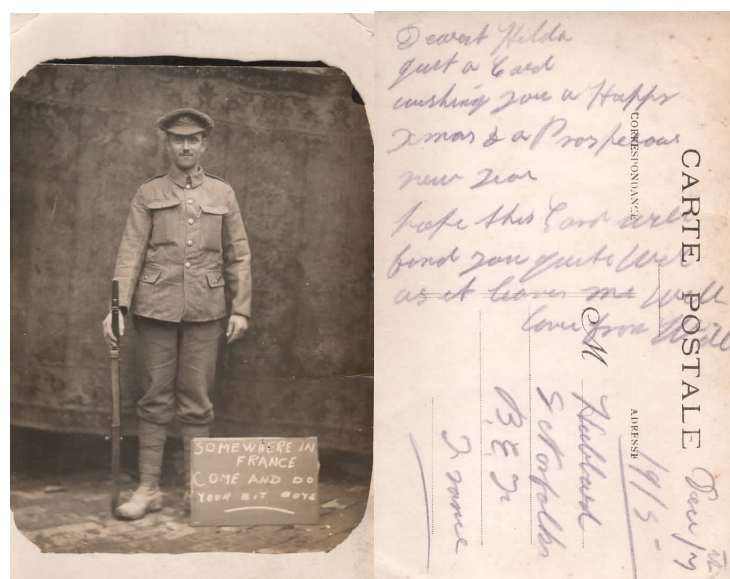 SOMEWHERE IN
FRANCE
COME AND DO
YOUR BIT BOYS
Dearest Hilda
Just a Card
wishing you a Happy
Xmas & a Prosperous
new Year
hope this Card will
find you quite Well
as it leaves me Well
love from
CARTE POSTALE
CORRESPONDANCE
ADRESSE
M
Hubbard
Norfolks
B.E.F.
France
1915